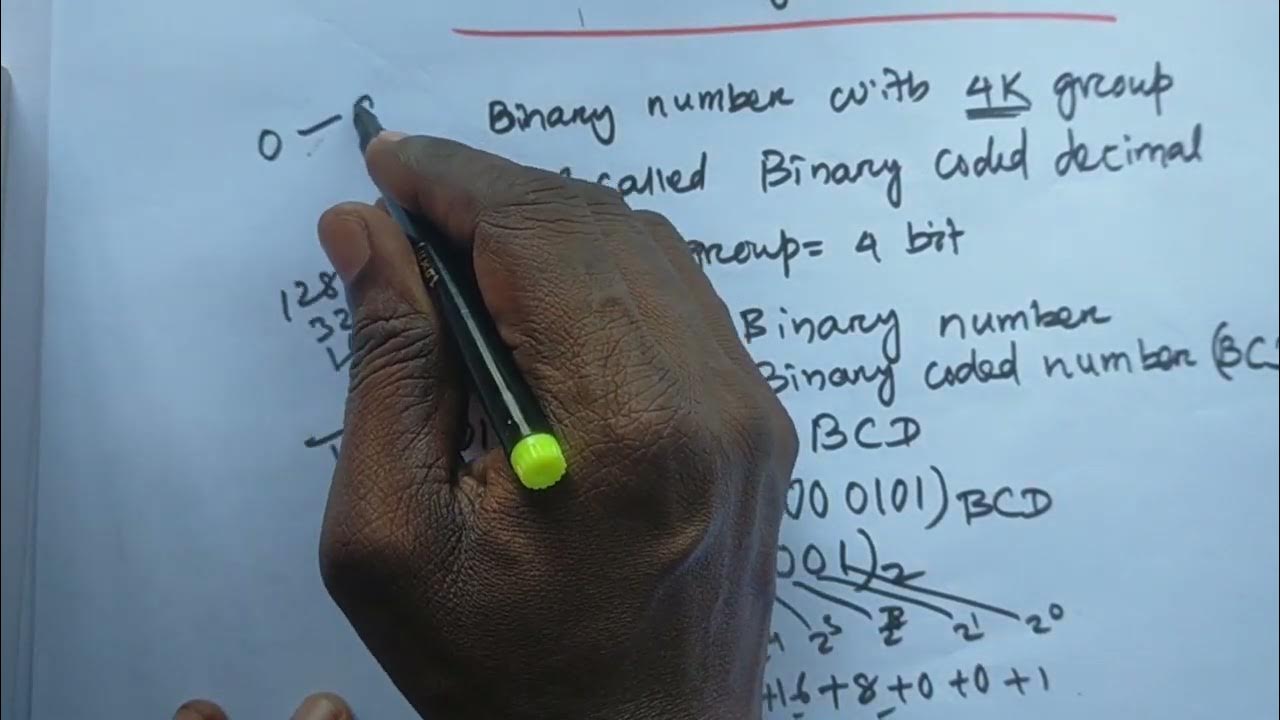 0 —
Binary number with 4K group
called Binary coded decimal
group= 4 bit
128
32
Binary number
Binary coded number (BC
BCD
00 0101) BCD
001)2
2^1 2^0
+16+8+0+0+1